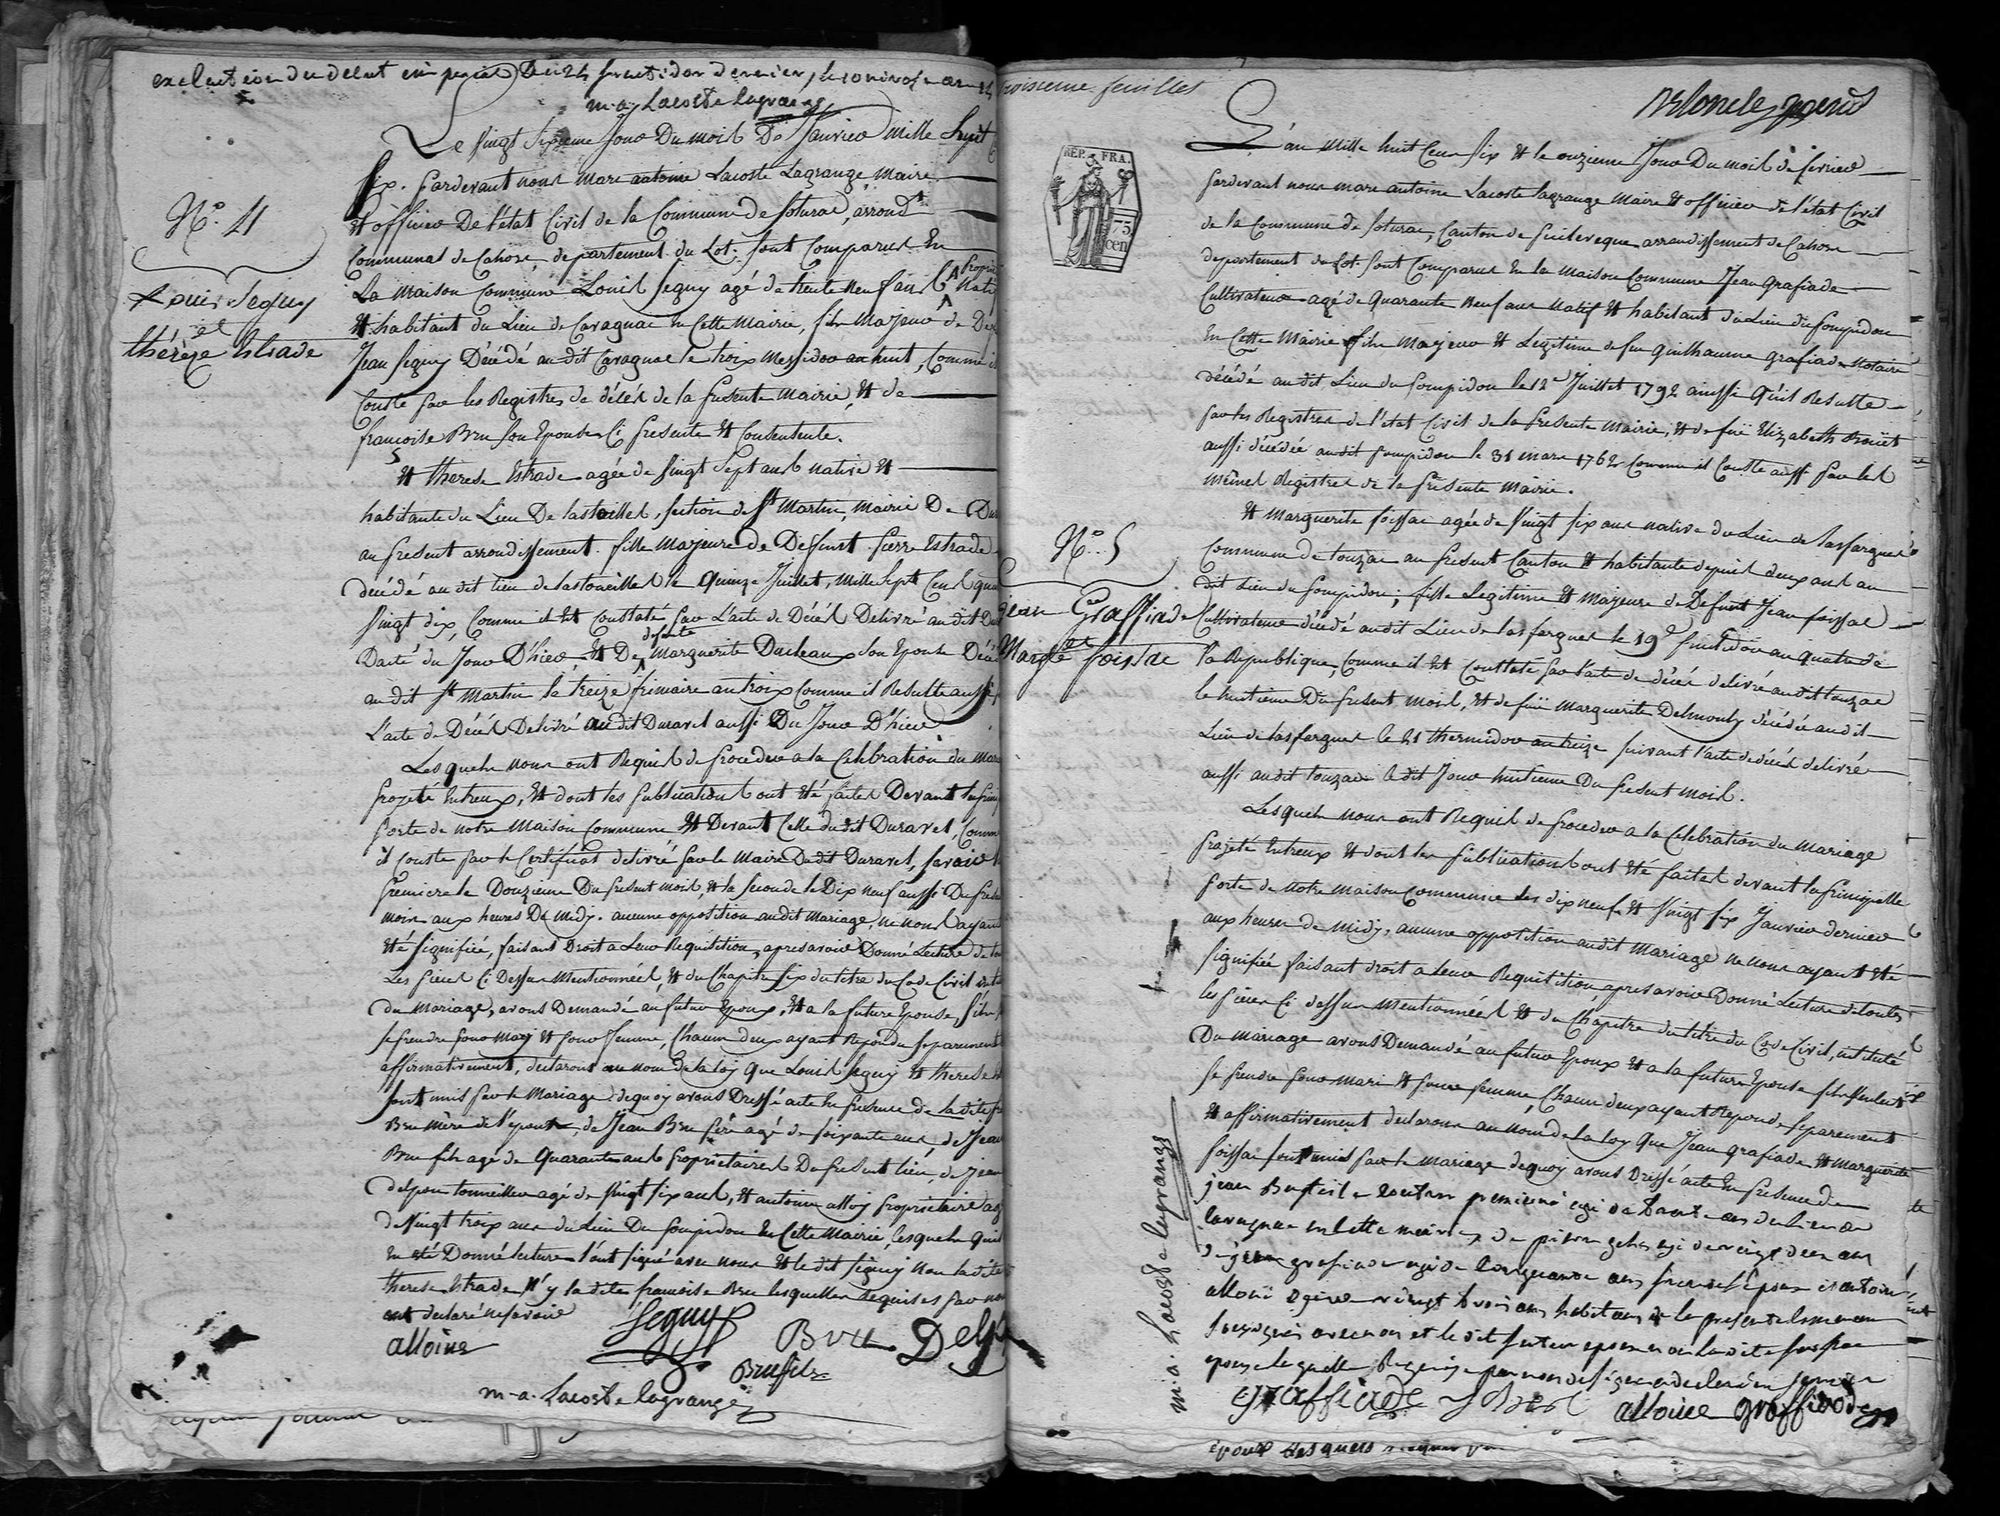 execution du décret impérial Du 24 fructidor dernier, le 10 nivose an 14
m-a. Lacoste lagrange
Le vingt sixieme Jour Du mois De Janvier mille huit
six. pardevant nous Marc antoine Lacoste Lagrange maire
et officier De l'état Civil de la Commune de soturac, arrond.t
Communal de Cahors, departement du Lot. sont Comparus En
La maison Commune Louis seguy agé de trente neuf ans
et habitant du Lieu de Cavagnac en Cette mairie, fils Majeur de
Jean seguy Décédé au dit Cavagnac le trois Messidor an huit, Comme il
Conste par les Registres de décés de la presente mairie, et de
francoise Bru son Epouse Ci presente et Consentente.
N.o 4
Louis Seguy
et
thérèze Estrade
et therese Estrade agée de vingt sept ans native et
habitante du Lieu De Lastouilles, section de st Martin, mairie De
au present arrondissement. fille majeure de Deffunt pierre Estrade
décédé au dit lieu de Lastoueilles le quinze Juillet, mille sept Cens
vingt dix, Comme il Est Constaté par L'acte de Décés Delivré au dit
Daté du Jour D'hier, et De defunte marguerite Ducleaux son Epouse
au dit st Martin le treize frimaire an trois Comme il Resulte aussi
L'acte de Décés Delivré au dit Duravel aussi Du Jour D'hier
Lesquels nous ont Requis de proceder a la Celebration du
projeté Entreux, et dont les publications ont été faites Devant la
porte de notre maison Commune et Devant Celle du dit Duravel, Comme
il Conste par le Certificat delivré par le maire Du dit Duravel, savoir la
premiere le Douzieme Du present mois, et la seconde le Dix neuf aussi Du
mois aux heures De midy. aucune opposition au dit mariage, ne nous ayant
été signifiée, faisant Droit a Leur Requisition, apres avoir Donné Lecture de
Les pieces Ci Dessus Mentionnées, et du Chapitre six du titre du Code Civil
du mariage, avons Demandé au futur Epoux, et a la future Epouse,
se prendre pour Mary et pour femme, Chacun deux ayant Repondu separement
affirmativement, declarons au nom de la loy que Louis seguy et therese
sont unis par le Mariage. dequoy avons Dressé acte En presence de la dite
Bru mère de l'epoux, de Jean Bru père agé de soixante ans, de Jean
Bru fils agé de quarante ans proprietaires Du present lieu, de jean
delpon tonneillier agé de vingt six ans, et antoine alloy proprietaire
de vingt trois ans du Lieu Du pompidou En Cette Mairie, lesquels
En été Donné lecture l'ont signé avec nous et le dit seguy non la dite
therese Estrade n'y la dite francoise Bru lesquelles Requises par nous
ont declaré ne savoir
Seguy
alloiue
Bru
Brufils
m-a. Lacoste lagrange
troisieme feuilles
RÉP. FRA.
75
cen
L'an Mille huit Cens six et le onzieme Jour Du mois de fevrier
pardevant nous marc antoine Lacoste lagrange Maire et officier de l'état Civil
de la Commune de soturac, Canton de puileveque arrondissement de Cahors
departement du Lot sont Comparus En la Maison Commune Jean grafiade
Cultivateur agé de quarante neuf ans natif et habitant du Lieu du pompidou
En Cette Mairie fils majeur et Legitime de feu Guilhaume grafiade Notaire
décédé au dit Lieu du pompidou le 12e Juillet 1792 ainssi qu'il Resulte
par les Registres de l'état Civil de la presente Mairie, et de fuë Elizabeth
aussi décédée au dit pompidou le 31 mars 1762 Comme il Conste aussi par les
mêmes Registres de la présente Mairie.
N.o 5
jean Graffiade
et
Margte foissac
et marguerite foissac agée de vingt six ans native du Lieu de lasfargues
Commune de touzac au present Canton et habitante depuis deux ans au
dit Lieu du pompidou; fille Legitime et majeure de Defunt Jean foissac
Cultivateur décédé au dit Lieu de lasfargues le 19e fructidor an quatre de
la Republique, Comme il Est Constaté par l'acte de décés delivré au dit touzac
le huitieme Du present mois, et de fuë marguerite Delmouly décédée au dit
Lieu de lasfargues le 21 thermidor an treize suivant l'acte de décés delivré
aussi au dit touzac le dit Jour huitieme Du present mois.
Lesquels nous ont Requis de proceder a la Celebration du mariage
projeté Entreux et dont les publications ont été faites devant la principalle
porte de Notre maison Commune les dix neuf et vingt six Janvier dernier
aux heures de midy, aucune opposition au dit Mariage ne nous ayant été
signifiée faisant droit a leur Requisition apres avoir Donné Lecture de toutes
les pieces Ci dessus Mentionnées et du Chapitre du titre du Code Civil, intitulé
Du mariage avons Demandé au futur Epoux et a la future Epouse s'ils veulent
se prendre pour mari et pour femme, Chacun deux ayant Repondu separement
et affirmativement declarons au nom de la loy que Jean grafiade et marguerite
foissac sont unis par le Mariage dequoy avons Dréssé acte En presence de
jean
cavagnac en cette mairie, de
de jean grafiade agé de cinquante ans frere de l'epoux et antoine
alloiü agé de vingt trois ans habitans de la presente commune
soussignés avec nous et le dit futur epoux non la dite foissac
epouse laquelle Requise par nous de signer a declaré ne savoir
graffiade
alloiue
graffiade
m-a. Lacoste lagrange